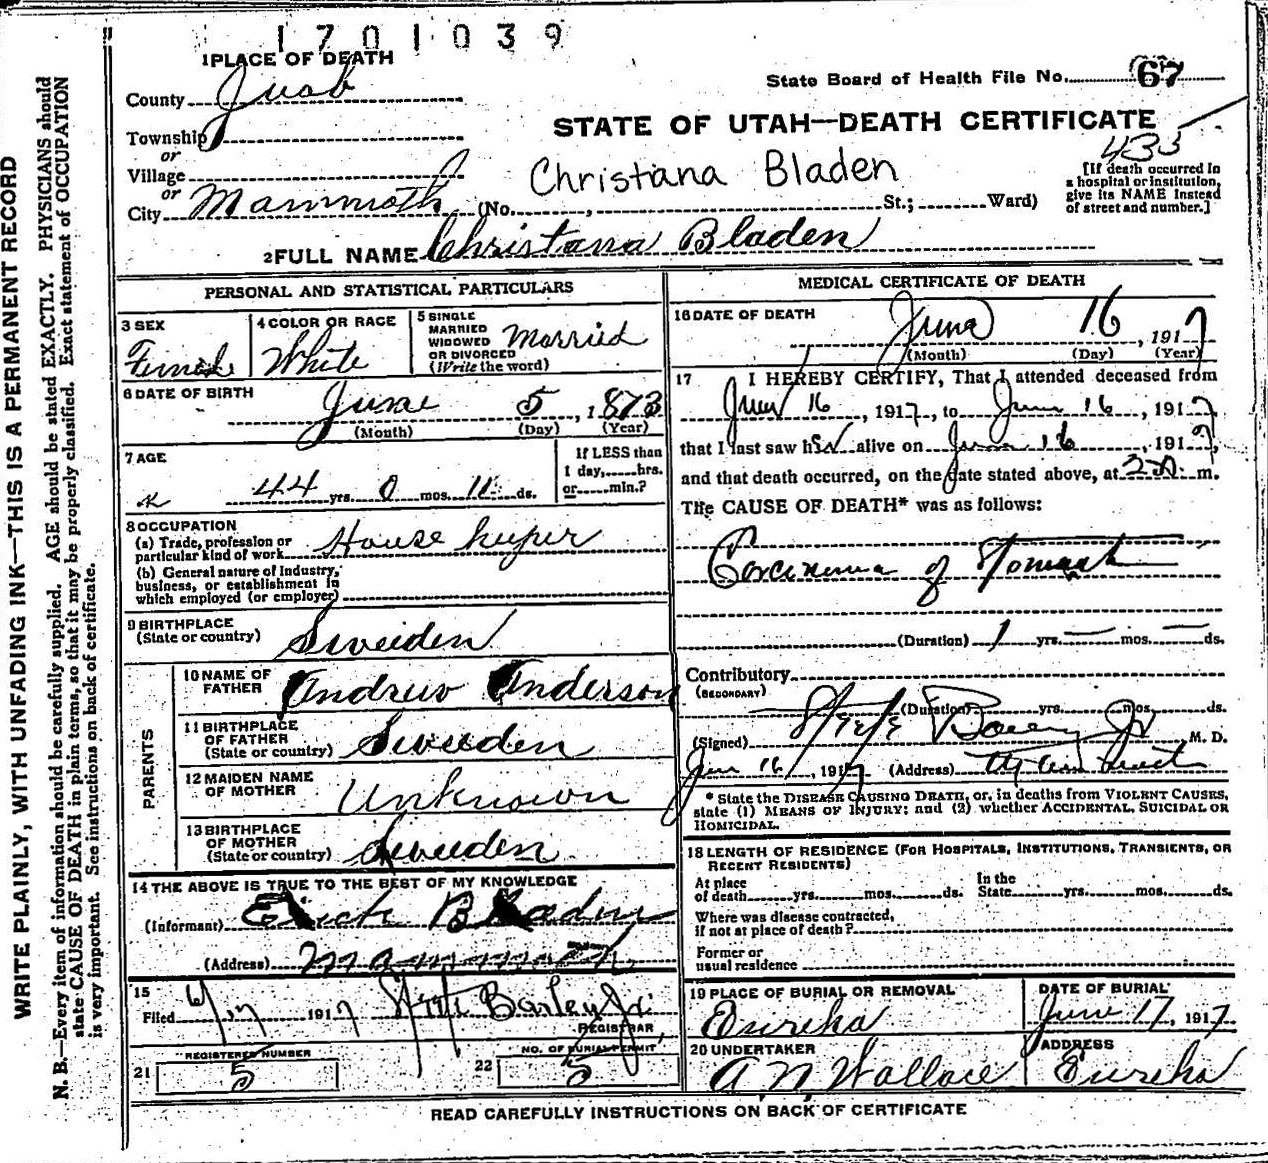 1701039
1 PLACE OF DEATH
State Board of Health File No. 67
County Juab
STATE OF UTAH—DEATH CERTIFICATE
Township
or
Village
or
City Mammoth (No. , St.; Ward)
Christiana Bladen
435
[If death occurred in
a hospital or institution,
give its NAME instead
of street and number.]
2 FULL NAME Christana Bladen
PERSONAL AND STATISTICAL PARTICULARS
3 SEX
Female
4 COLOR OR RACE
White
5 SINGLE
MARRIED
WIDOWED
OR DIVORCED
(Write the word)
Married
6 DATE OF BIRTH
June 5, 1873
(Month) (Day) (Year)
7 AGE
44 yrs. 0 mos. 11 ds.
If LESS than
1 day, hrs.
or min.?
8 OCCUPATION
(a) Trade, profession or
particular kind of work House keeper
(b) General nature of Industry,
business, or establishment in
which employed (or employer)
9 BIRTHPLACE
(State or country) Sweden
PARENTS
10 NAME OF
FATHER Andrew Anderson
11 BIRTHPLACE
OF FATHER
(State or country) Sweeden
12 MAIDEN NAME
OF MOTHER Unknown
13 BIRTHPLACE
OF MOTHER
(State or country) Sweeden
14 THE ABOVE IS TRUE TO THE BEST OF MY KNOWLEDGE
(Informant) Erick Bladen
(Address) Mammoth
15
Filed 6/17 1917
Bailey Jr.
REGISTRAR
21
REGISTERED NUMBER
5
22
NO. OF BURIAL PERMIT
5
MEDICAL CERTIFICATE OF DEATH
16 DATE OF DEATH
June 16, 1917
(Month) (Day) (Year)
17 I HEREBY CERTIFY, That I attended deceased from
June 16, 1917, to June 16, 1917,
that I last saw her alive on June 16, 1917,
and that death occurred, on the date stated above, at m.
The CAUSE OF DEATH* was as follows:
Carcinoma of Stomach
(Duration) 1 yrs. — mos. — ds.
Contributory
(SECONDARY)
(Duration) yrs. mos. ds.
(Signed) Bailey Jr M. D.
Jun 16, 1917 (Address)
* State the DISEASE CAUSING DEATH, or, in deaths from VIOLENT CAUSES,
state (1) MEANS OF INJURY; and (2) whether ACCIDENTAL, SUICIDAL OR
HOMICIDAL.
18 LENGTH OF RESIDENCE (FOR HOSPITALS, INSTITUTIONS, TRANSIENTS, OR
RECENT RESIDENTS)
At place
of death yrs. mos. ds.
In the
State yrs. mos. ds.
Where was disease contracted,
if not at place of death?
Former or
usual residence
19 PLACE OF BURIAL OR REMOVAL
Eureka
DATE OF BURIAL
June 17, 1917.
20 UNDERTAKER
A. N. Wallace
ADDRESS
Eureka
READ CAREFULLY INSTRUCTIONS ON BACK OF CERTIFICATE
WRITE PLAINLY, WITH UNFADING INK—THIS IS A PERMANENT RECORD
N. B.—Every item of information should be carefully supplied. AGE should be stated EXACTLY. PHYSICIANS should
state CAUSE OF DEATH in plain terms, so that it may be properly classified. Exact statement of OCCUPATION
is very important. See instructions on back of certificate.